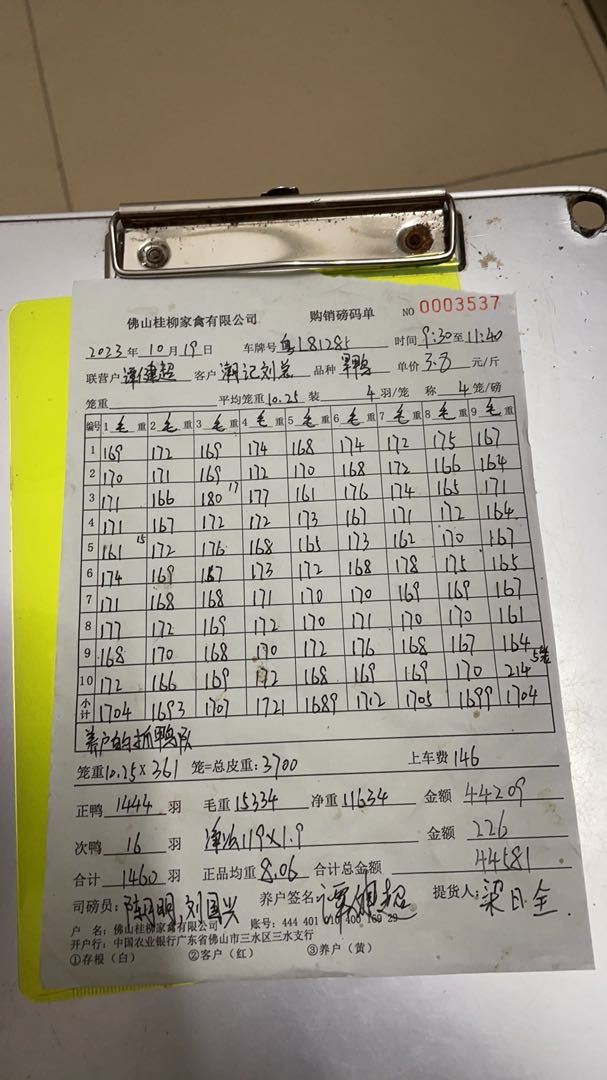 佛山桂柳家禽有限公司 购销磅码单 NO 0003537
2023年10月19日 车牌号 粤L81285 时间 9:30至11:40
联营户 谭健超 客户 潮记刘总 品种 单价 3.8 元/斤
笼重 平均笼重 10.25 装 4 羽/笼 称 4 笼/磅
编号 1 毛 重 2 毛 重 3 毛 重 4 毛 重 5 毛 重 6 毛 重 7 毛 重 8 毛 重 9 毛 重
1 169 172 169 174 168 174 172 175 167
2 170 171 169 172 170 168 172 166 164
3 171 166 180 17 177 161 176 174 165 171
4 171 167 172 172 173 167 171 172 164
5 161 15 172 176 168 165 173 162 170 167
6 174 169 187 173 172 168 178 175 165
7 171 168 168 171 170 170 169 169 167
8 177 172 169 172 170 171 170 170 161
9 168 170 168 170 172 176 168 167 164
10 172 166 169 172 168 169 169 170 214 5笼
小计 1704 1693 1707 1721 1689 1712 1705 1699 1704
养户的抓鸭队
笼重 10.25×361 笼=总皮重: 3700 上车费 146
正鸭 1444 羽 毛重 15334 净重 11634 金额 44209
次鸭 16 羽 119×1.9 金额 226
合计 1460 羽 正品均重 8.06 合计总金额 44581
司磅员: 刘国兴 养户签名: 提货人: 梁日金
户 名: 佛山桂柳家禽有限公司 账号: 444 401 010 400 160 29
开户行: 中国农业银行广东省佛山市三水区三水支行
①存根（白） ②客户（红） ③养户（黄）